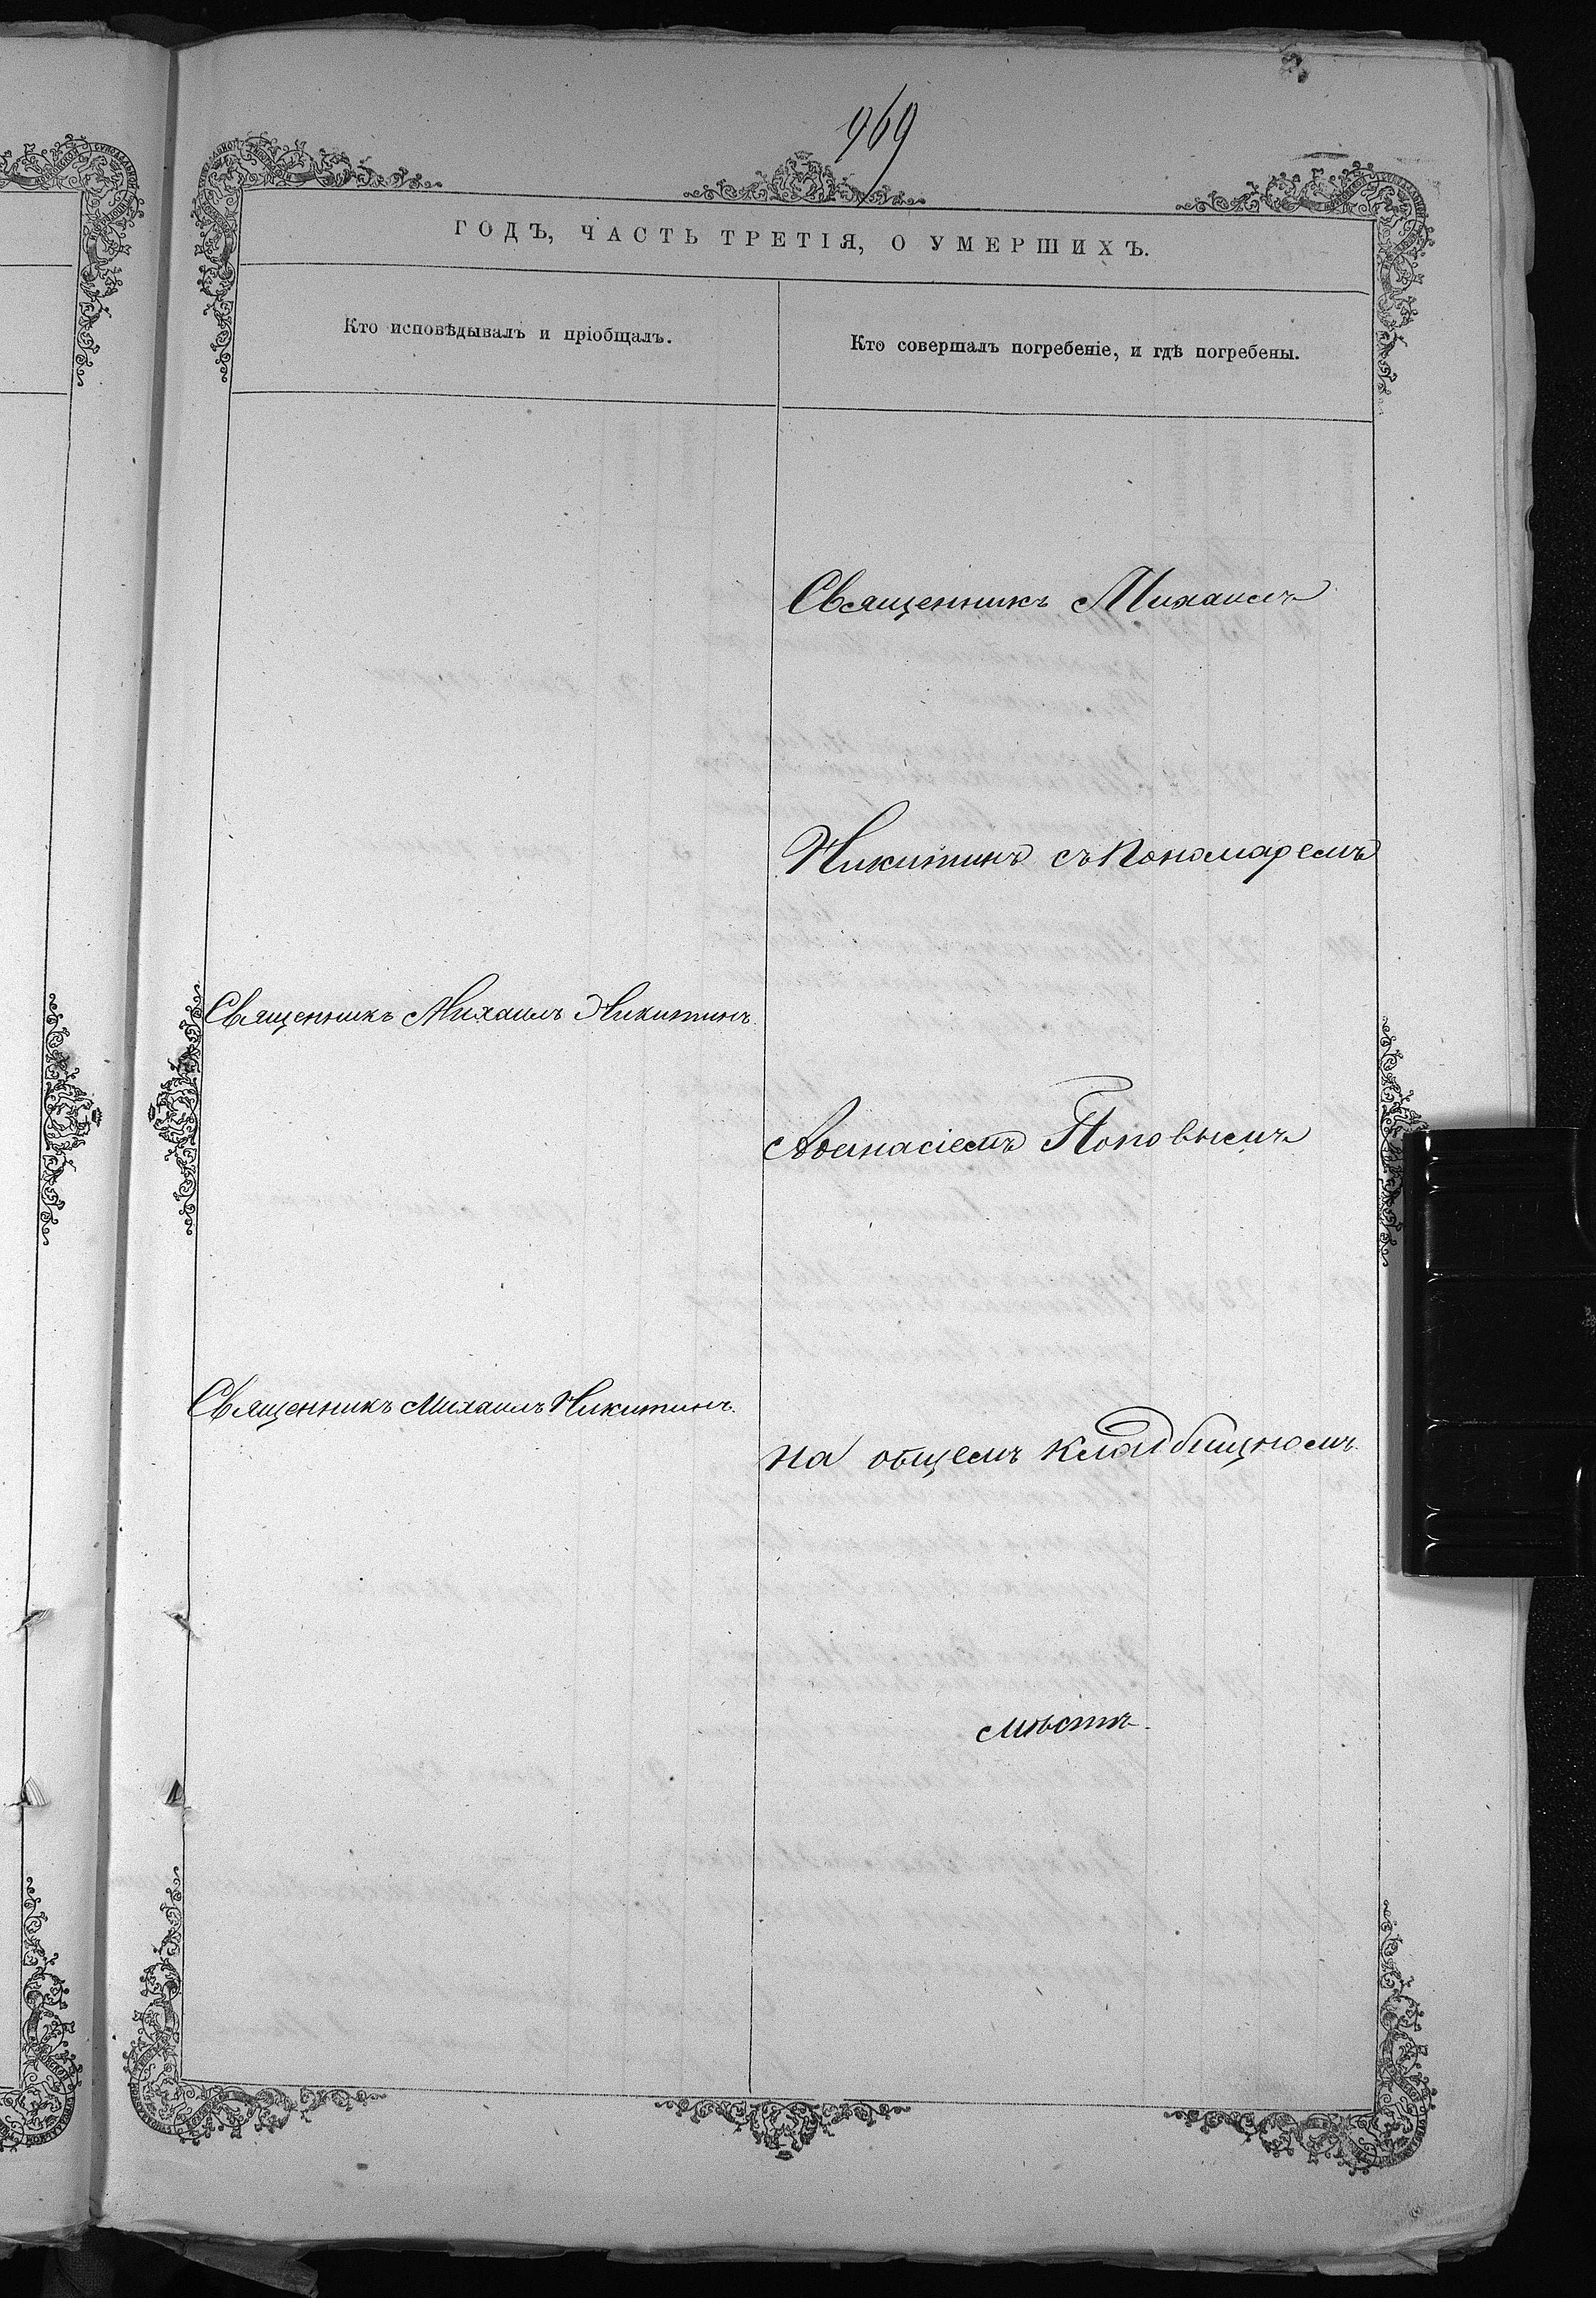 969
ГОДЪ, ЧАСТЬ ТРЕТІЯ, О УМЕРШИХЪ.
Кто исповѣдывалъ и пріобщалъ.
Кто совершалъ погребеніе, и гдѣ погребены.
Священникъ Михаилъ
Никитинъ съ пономаремъ
Священникъ Михаилъ Никитинъ
Аѳанасіемъ Поповымъ
Священникъ Михаилъ Никитинъ.
на общемъ кладбищномъ
мѣстѣ.